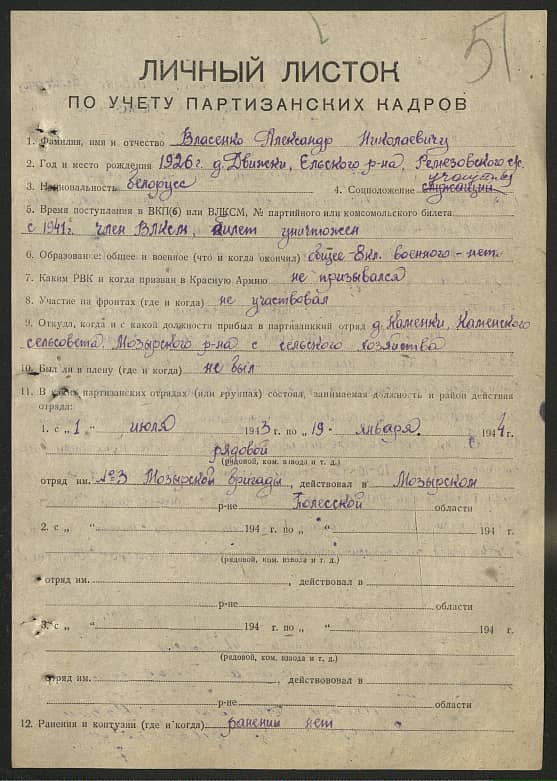 51
ЛИЧНЫЙ ЛИСТОК
ПО УЧЕТУ ПАРТИЗАНСКИХ КАДРОВ
1. Фамилия, имя и отчество Власенко Александр Николаевич
2. Год и место рождения 1926 г. д. Движки, Ельского р-на, Ремезовского с/с.
3. Национальность белорусс 4. Соцположение служащий учащийся
5. Время поступления в ВКП(б) или ВЛКСМ, № партийного или комсомольского билета
с 1941 г. член ВЛКСМ, билет уничтожен
6. Образование: общее и военное (что и когда окончил) общее 8 кл. военного - нет.
7. Каким РВК и когда призван в Красную Армию не призывался
8. Участие на фронтах (где и когда) не участвовал
9. Откуда, когда и с какой должности прибыл в партизанский отряд д. Каменки, Каменского
сельсовета. Мозырского р-на с сельского хозяйства
10. Был ли в плену (где и когда) не был
11. В каких партизанских отрядах (или группах) состоял, занимаемая должность и район действия
отряда:
1. с „1" июля 1943 г. по „19" января 1944 г.
рядовой
(рядовой, ком. взвода и т. д.)
отряд им. №3 Мозырской бригады, действовал в Мозырском
р-не Полесской области
2. с „ " 194 г. по „ " 194 г.
(рядовой, ком. взвода и т. д.)
отряд им. , действовал в
р-не области
3. с „ " 194 г. по „ " 194 г.
(рядовой, ком. взвода и т. д.)
отряд им. , действовал в
р-не области
12. Ранения и контузии (где и когда) ранений нет